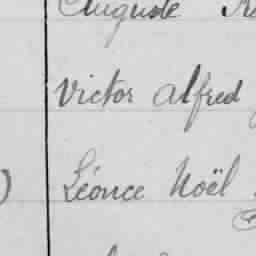 Auguste
Victor Alfred
Léonce Noël